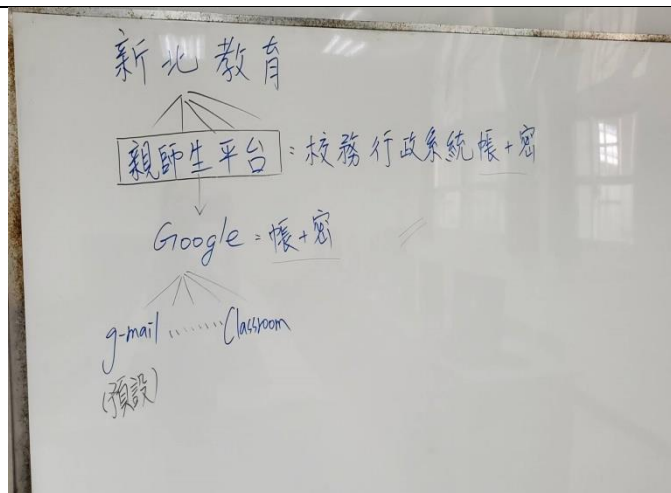 新北教育
親師生平台：校務行政系統帳+密
Google：帳+密
g-mail ........ Classroom
(預設)